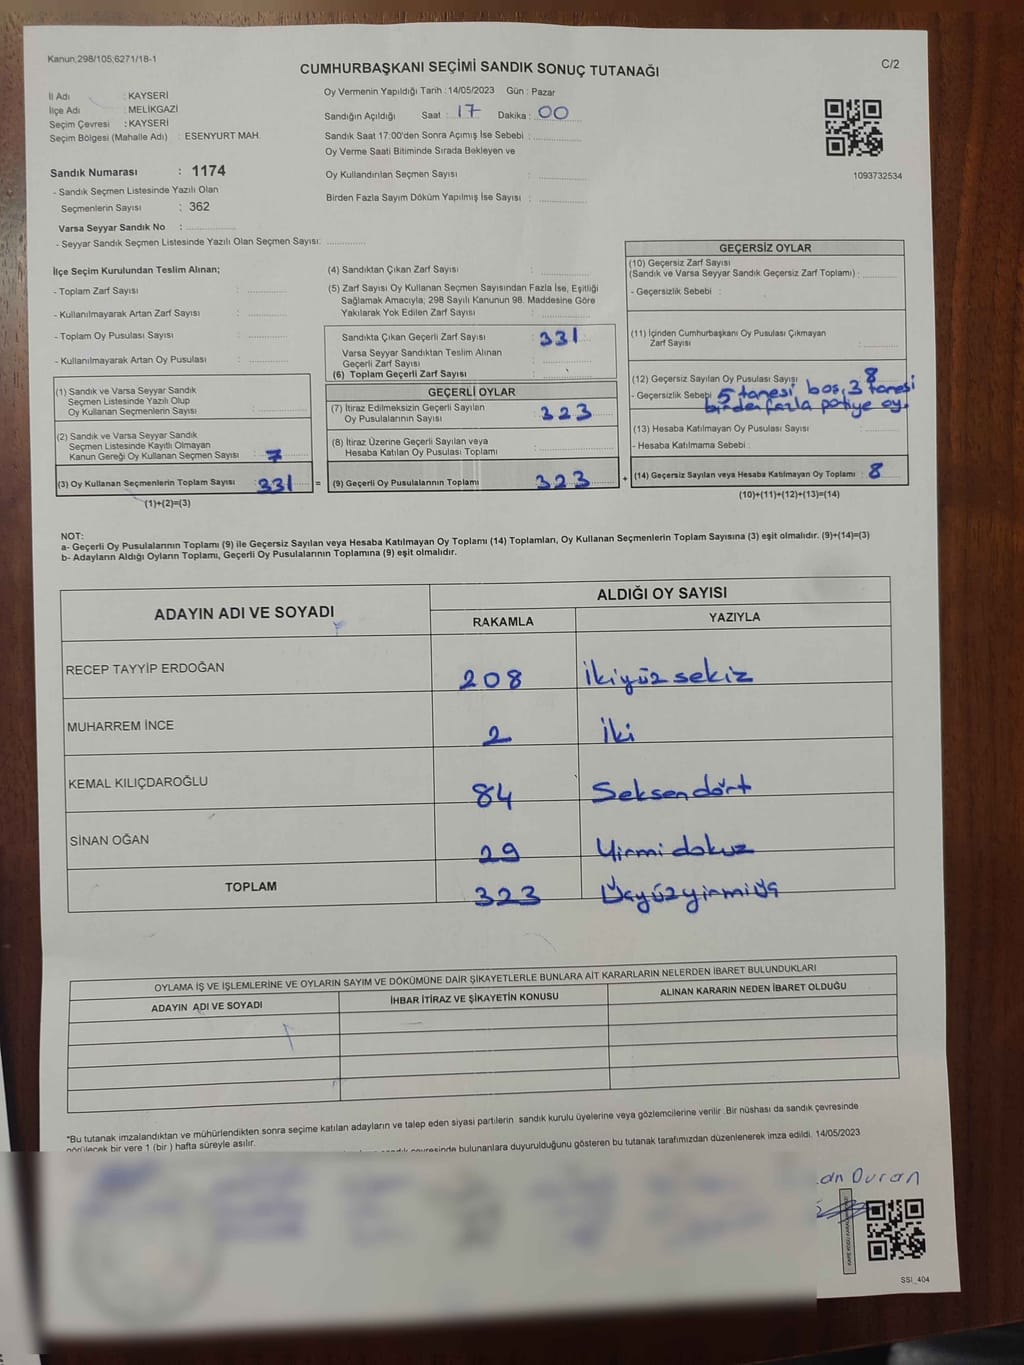 Kanun;298/105;6271/18-1
CUMHURBAŞKANI SEÇİMİ SANDIK SONUÇ TUTANAĞI
C/2
İl Adı : KAYSERİ
İlçe Adı : MELİKGAZİ
Seçim Çevresi : KAYSERİ
Seçim Bölgesi (Mahalle Adı) : ESENYURT MAH.
Sandık Numarası : 1174
- Sandık Seçmen Listesinde Yazılı Olan
Seçmenlerin Sayısı : 362
Varsa Seyyar Sandık No :
- Seyyar Sandık Seçmen Listesinde Yazılı Olan Seçmen Sayısı:
Oy Vermenin Yapıldığı Tarih : 14/05/2023 Gün : Pazar
Sandığın Açıldığı Saat : 17 Dakika : 00
Sandık Saat 17:00'den Sonra Açımış İse Sebebi :
Oy Verme Saati Bitiminde Sırada Bekleyen ve
Oy Kullandırılan Seçmen Sayısı :
Birden Fazla Sayım Döküm Yapılmış İse Sayısı :
1093732534
İlçe Seçim Kurulundan Teslim Alınan;
- Toplam Zarf Sayısı :
- Kullanılmayarak Artan Zarf Sayısı :
- Toplam Oy Pusulası Sayısı :
- Kullanılmayarak Artan Oy Pusulası :
(1) Sandık ve Varsa Seyyar Sandık
Seçmen Listesinde Yazılı Olup
Oy Kullanan Seçmenlerin Sayısı :
(2) Sandık ve Varsa Seyyar Sandık
Seçmen Listesinde Kayıtlı Olmayan
Kanun Gereği Oy Kullanan Seçmen Sayısı : 7
(3) Oy Kullanan Seçmenlerin Toplam Sayısı : 331 =
(1)+(2)=(3)
(4) Sandıktan Çıkan Zarf Sayısı :
(5) Zarf Sayısı Oy Kullanan Seçmen Sayısından Fazla İse, Eşitliği
Sağlamak Amacıyla; 298 Sayılı Kanunun 98. Maddesine Göre
Yakılarak Yok Edilen Zarf Sayısı :
Sandıkta Çıkan Geçerli Zarf Sayısı : 331
Varsa Seyyar Sandıktan Teslim Alınan
Geçerli Zarf Sayısı :
(6) Toplam Geçerli Zarf Sayısı :
GEÇERLİ OYLAR
(7) İtiraz Edilmeksizin Geçerli Sayılan
Oy Pusulasının Sayısı : 323
(8) İtiraz Üzerine Geçerli Sayılan veya
Hesaba Katılan Oy Pusulası Toplamı :
(9) Geçerli Oy Pusulalarının Toplamı : 323 +
GEÇERSİZ OYLAR
(10) Geçersiz Zarf Sayısı
(Sandık ve Varsa Seyyar Sandık Geçersiz Zarf Toplamı) :
- Geçersizlik Sebebi :
(11) İçinden Cumhurbaşkanı Oy Pusulası Çıkmayan
Zarf Sayısı :
(12) Geçersiz Sayılan Oy Pusulası Sayısı : 8
- Geçersizlik Sebebi : 5 tanesi boş, 3 tanesi
birden fazla partiye oy.
(13) Hesaba Katılmayan Oy Pusulası Sayısı :
- Hesaba Katılmama Sebebi :
(14) Geçersiz Sayılan veya Hesaba Katılmayan Oy Toplamı : 8
(10)+(11)+(12)+(13)=(14)
NOT:
a- Geçerli Oy Pusulalarının Toplamı (9) ile Geçersiz Sayılan veya Hesaba Katılmayan Oy Toplamı (14) Toplamları, Oy Kullanan Seçmenlerin Toplam Sayısına (3) eşit olmalıdır. (9)+(14)=(3)
b- Adayların Aldığı Oyların Toplamı, Geçerli Oy Pusulalarının Toplamına (9) eşit olmalıdır.
ADAYIN ADI VE SOYADI ALDIĞI OY SAYISI
RAKAMLA YAZIYLA
RECEP TAYYİP ERDOĞAN 208 İkiyüz sekiz
MUHARREM İNCE 2 İki
KEMAL KILIÇDAROĞLU 84 Seksen dört
SİNAN OĞAN 29 Yirmi dokuz
TOPLAM 323 Üçyüzyirmiüç
OYLAMA İŞ VE İŞLEMLERİNE VE OYLARIN SAYIM VE DÖKÜMÜNE DAİR ŞİKAYETLERLE BUNLARA AİT KARARLARIN NELERDEN İBARET BULUNDUKLARI
ADAYIN ADI VE SOYADI İHBAR İTİRAZ VE ŞİKAYETİN KONUSU ALINAN KARARIN NEDEN İBARET OLDUĞU
*Bu tutanak imzalandıktan ve mühürlendikten sonra seçime katılan adayların ve talep eden siyasi partilerin sandık kurulu üyelerine veya gözlemcilerine verilir .Bir nüshası da sandık çevresinde
görülecek bir yere 1 (bir ) hafta süreyle asılır.
çevresinde bulunanlara duyurulduğunu gösteren bu tutanak tarafımızdan düzenlenerek imza edildi. 14/05/2023
an Duran
SSİ_404